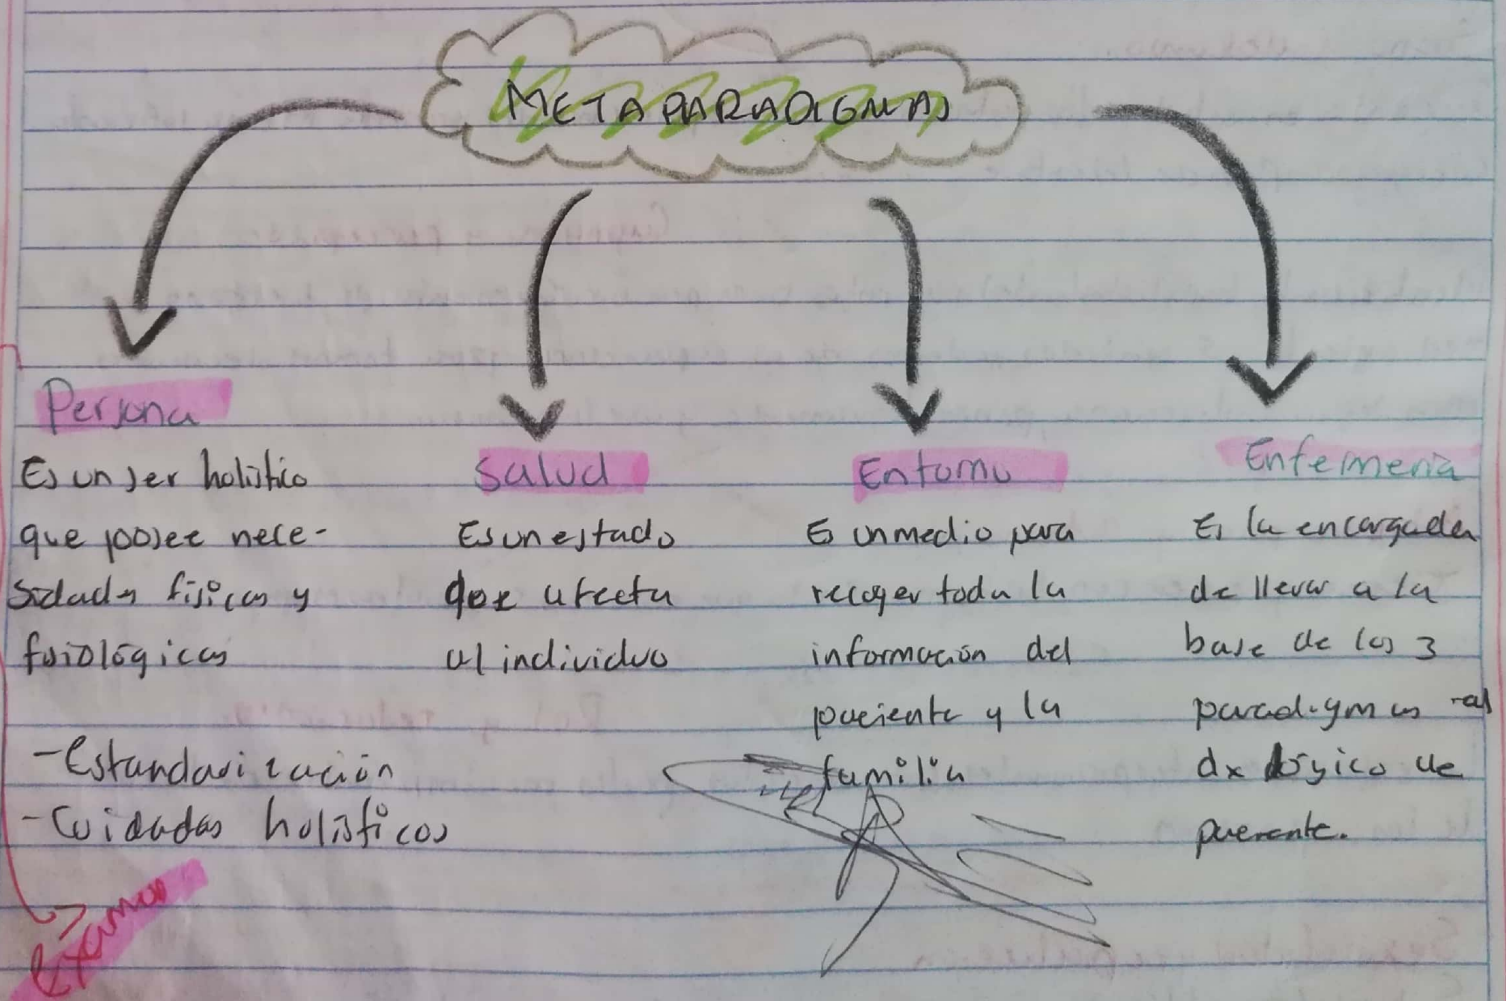 METAPARADIGMAS
Persona
Es un ser holístico
que posee nece-
sidades físicas y
fisiológicas
- Estandarización
- Cuidados holísticos
Examen
Salud
Es un estado
que afecta
al individuo
Entorno
Es un medio para
recoger toda la
información del
paciente y la
familia
Enfermería
Es la encargada
de llevar a la
base de los 3
paradigmas
dx lógico de